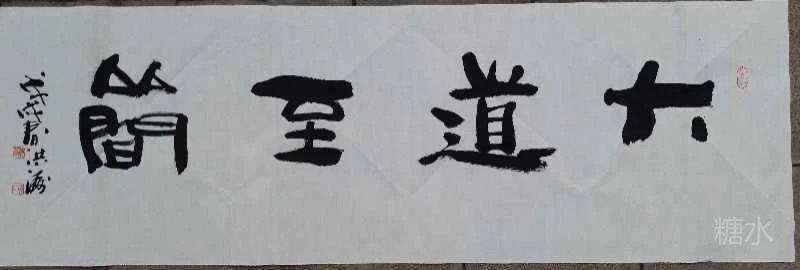 大道至簡
戊戌春洪涛
糖水